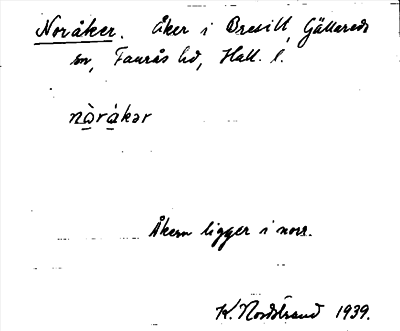 Noråker. Åker i Bresilt, Gällareds
sn, Faurås hd, Hall. l.
nòrákər
Åkern ligger i norr.
K. Nordstrand 1939.